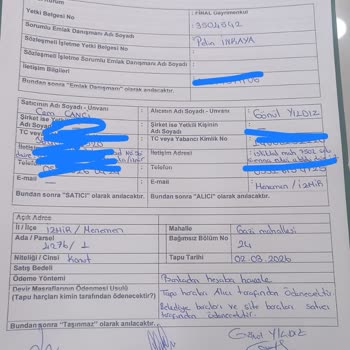 : FİNAL Gayrimenkul
Yetki Belgesi No : 3504542
Sorumlu Emlak Danışmanı Adı Soyadı : Pelin
Sözleşmeli İşletme Yetki Belgesi No :
Sözleşmeli İşletme Sorumlu Emlak Danışmanı Adı Soyadı :
İletişim Bilgileri :
Bundan sonra "Emlak Danışmanı" olarak anılacaktır.
Satıcının Adı Soyadı - Unvanı : Cem Alıcının Adı Soyadı - Unvanı : Gönül YILDIZ
Şirket ise Yetkili Kişinin Adı Soyadı
Adı Soyadı
TC veya TC veya Yabancı Kimlik No :
İletişim İletişim Adresi :
Telefon Telefon :
E-mail : E-mail : Menemen / İZMİR
Bundan sonra "SATICI" olarak anılacaktır. Bundan sonra "ALICI" olarak anılacaktır.
Açık Adresi
İl / İlçe : İZMİR / Menemen Mahalle : Gazi mahallesi
Ada / Parsel : 4276/1 Bağımsız Bölüm No : 24
Niteliği / Cinsi : Konut Tapu Tarihi : 02.03.2026
Satış Bedeli :
Ödeme Yöntemi : Bankadan hesaba havale
Devir Masraflarının Ödenmesi Usulü : Tapu harçları Alıcı tarafından ödenecektir
(Tapu harçları kimin tarafından ödenecektir?) Belediye borçları ve site borçları satıcı
tarafından ödenecektir.
Bundan sonra "Taşınmaz" olarak anılacaktır.
Gönül YILDIZ